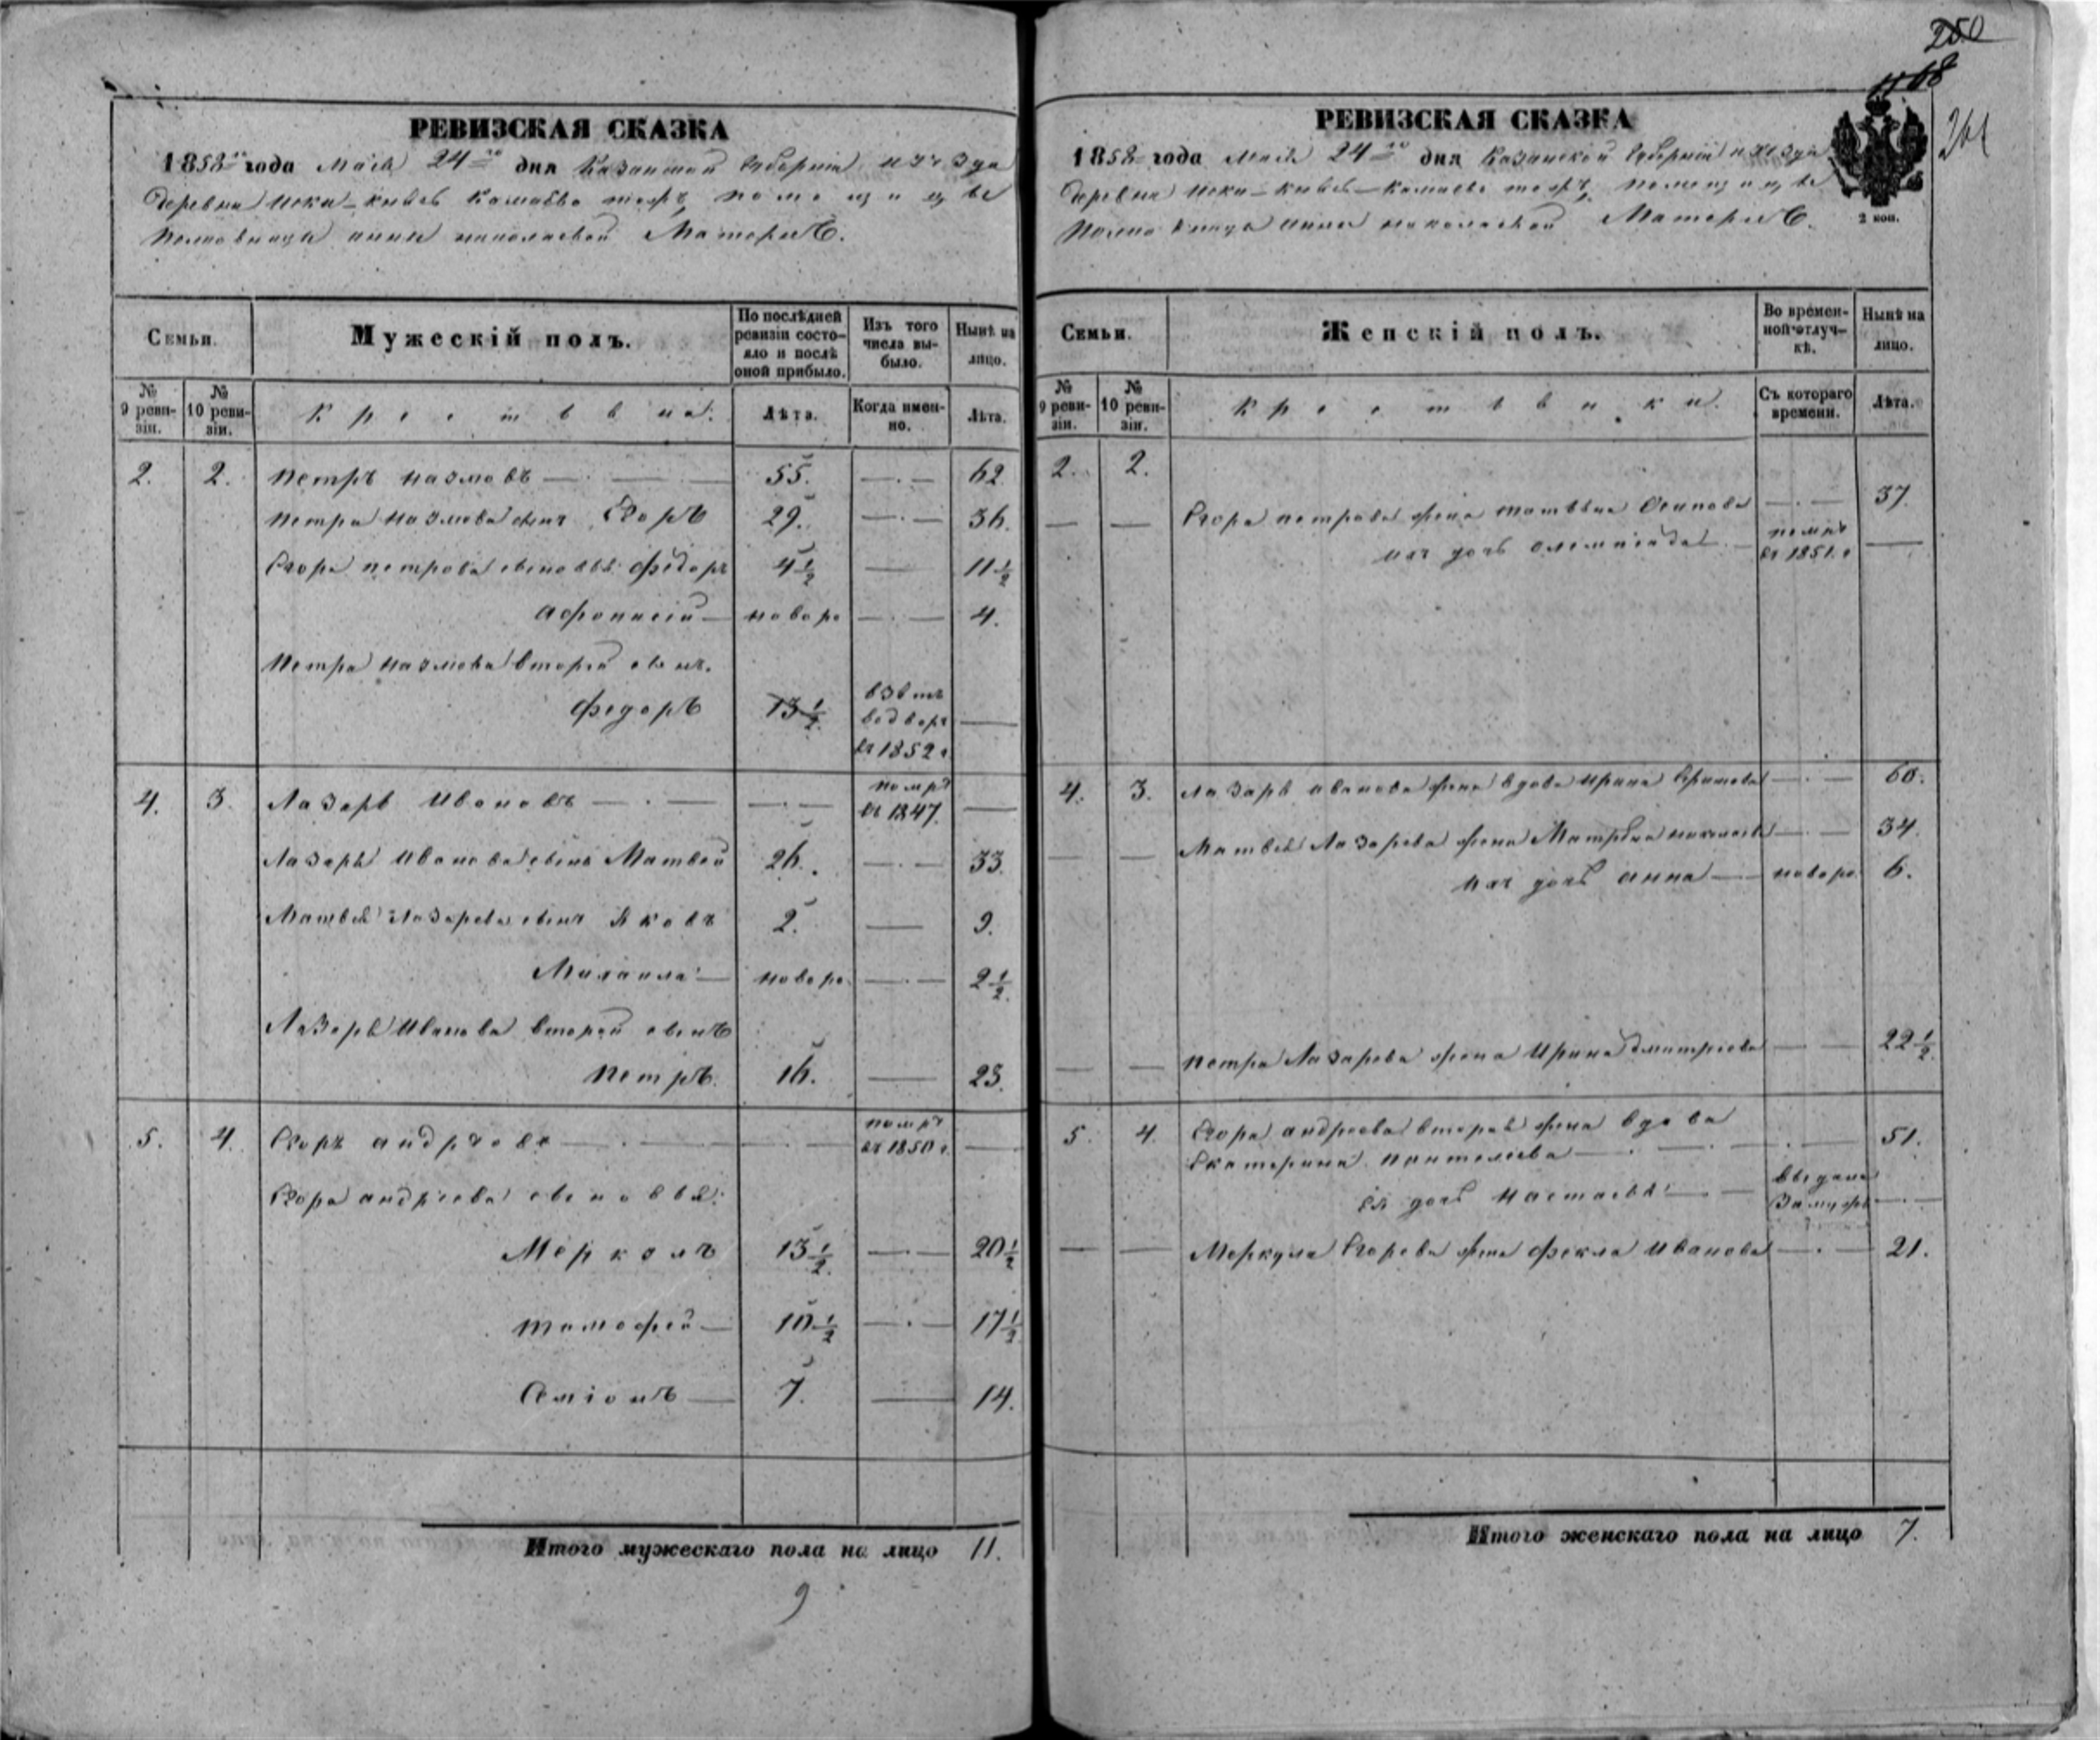 РЕВИЗСКАЯ СКАЗКА
1858 года Маія 24го дня Казанской Губерніи и уезда
деревни Иски-Князь Камаево тожъ помещицы
Полковницы Анны Николаевой
Семьи.
Мужескій полъ.
По послѣдней ревизіи состояло и послѣ оной прибыло.
Изъ того числа выбыло.
Нынѣ на лицо.
№ 9 ревизіи.
№ 10 ревизіи.
Лѣта.
Когда именно.
Лѣта.
2. 2. Петръ Наумовъ — 55. — 62
Петра Наумова сынъ Егоръ 29. — 36.
Егора Петрова сыновья Федоръ 4 1/2 — 11 1/2
Афонасій — новоро — 4.
Петра Наумова второй сынъ.
Федоръ 13 1/2 взятъ во дворъ въ 1852 г —
4. 3. Лазарь Ивановъ — — помръ въ 1847. —
Лазаря Иванова сынъ Матвей 26. — 33.
Матвея Лазарева сынъ Яковъ 2. — 9.
Михаила — новоро — 2 1/2.
Лазаря Иванова второй сынъ
Петръ. 16. — 23.
5. 4. Егоръ Андреевъ — — помръ въ 1850 г. —
Егора Андреева сыновья:
Меркулъ 13 1/2. — 20 1/2
Тимофей — 10 1/2 — 17 1/2
Семіонъ — 7. — 14.
Итого мужескаго пола на лицо 11.
9
250
168
261
РЕВИЗСКАЯ СКАЗКА
1858 года Маія 24го дня Казанской Губерніи и уезда
деревни Иски-Князь-Камаево тожъ помещицы
Полковницы Анны Николаевой
2 коп.
Семьи.
Женскій полъ.
Во временной отлучкѣ.
Нынѣ на лицо.
№ 9 ревизіи.
№ 10 ревизіи.
Крестьянки.
Съ котораго времени.
Лѣта.
2. 2.
— — Егора Петрова жена Татьяна Осипова — 37.
ихъ дочь Олемпіада — въ 1851. г —
4. 3. Лазаря Иванова жена вдова Ирина — 60.
— — Матвея Лазарева жена Матрена — 34.
ихъ дочь Анна — новоро. 6.
— — Петра Лазарева жена Ирина Дмитріева — 22 1/2.
5. 4. Егора Андреева вторая жена вдова
Екатерина Пантелеева — 51.
ея дочь Настасья — выдана замужъ —
— — Меркула Егорева жена Фекла Иванова — 21.
Итого женскаго пола на лицо 7.